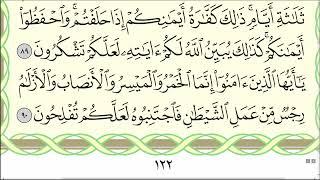 ثَلَٰثَةِ أَيَّامٍ ۚ ذَٰلِكَ كَفَّٰرَةُ أَيْمَٰنِكُمْ إِذَا حَلَفْتُمْ ۚ وَٱحْفَظُوٓا۟
أَيْمَٰنَكُمْ ۚ كَذَٰلِكَ يُبَيِّنُ ٱللَّهُ لَكُمْ ءَايَٰتِهِۦ لَعَلَّكُمْ تَشْكُرُونَ ٨٩
يَٰٓأَيُّهَا ٱلَّذِينَ ءَامَنُوٓا۟ إِنَّمَا ٱلْخَمْرُ وَٱلْمَيْسِرُ وَٱلْأَنصَابُ وَٱلْأَزْلَٰمُ
رِجْسٌ مِّنْ عَمَلِ ٱلشَّيْطَٰنِ فَٱجْتَنِبُوهُ لَعَلَّكُمْ تُفْلِحُونَ ٩٠
١٢٢